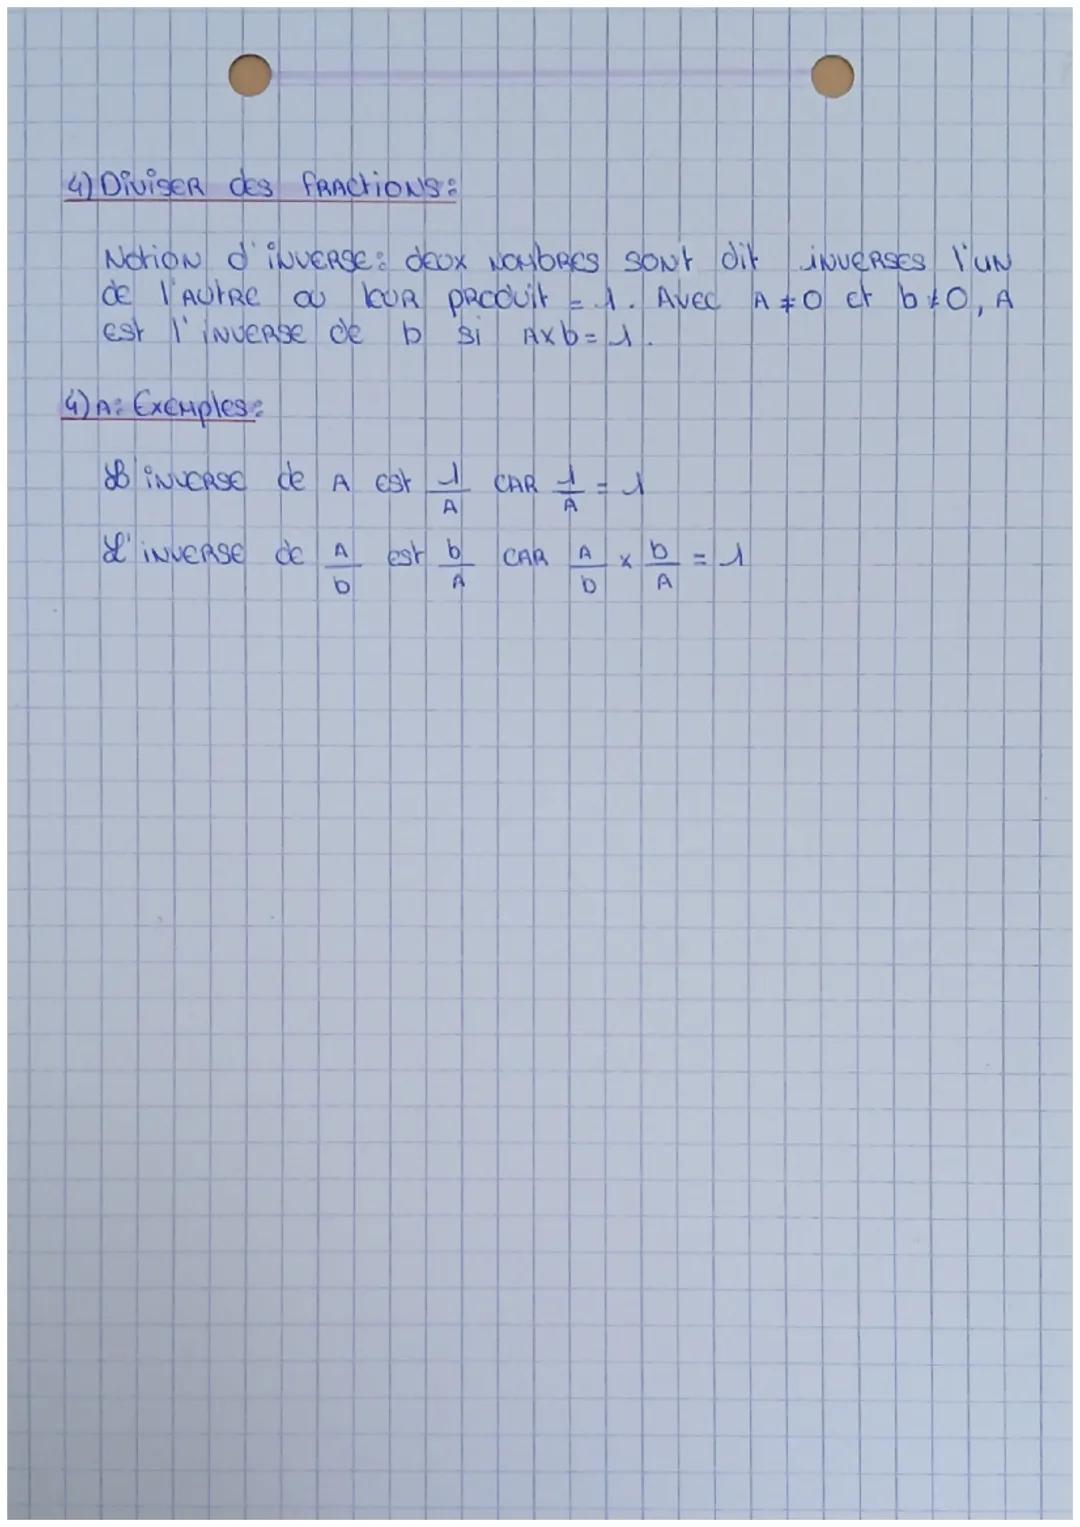 4) Diviser des fractions:
Notion d'inverse: deux nombres sont dit inverses l'un
de l'autre ou leur produit = 1. Avec A ≠ 0 et b ≠ 0, A
est l'inverse de b si A x b = 1.
4) A: Exemples:
L'inverse de A est 1/A car 1/A = 1
L'inverse de A/b est b/A car A/b x b/A = 1